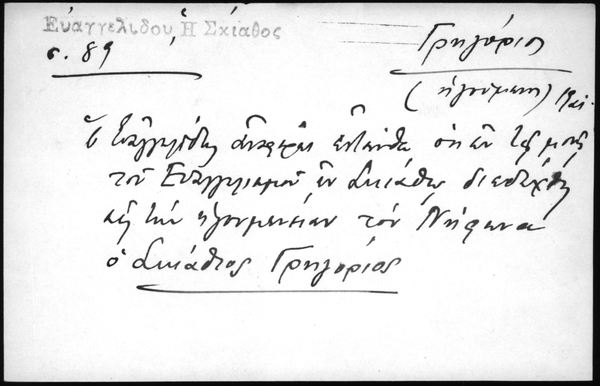 Εὐαγγελίδου Ἡ Σκίαθος
σ. 89
Γρηγόριος
(ἡγούμενος)
ὁ Εὐαγγελίδης ἀναφέρει ἐνταῦθα ὅτι ἐν τῇ μονῇ
τοῦ Εὐαγγελισμοῦ ἐν Σκιάθῳ διεδέχθη
εἰς τὴν ἡγουμενείαν τὸν Νήφωνα
ὁ Σκιάθιος Γρηγόριος